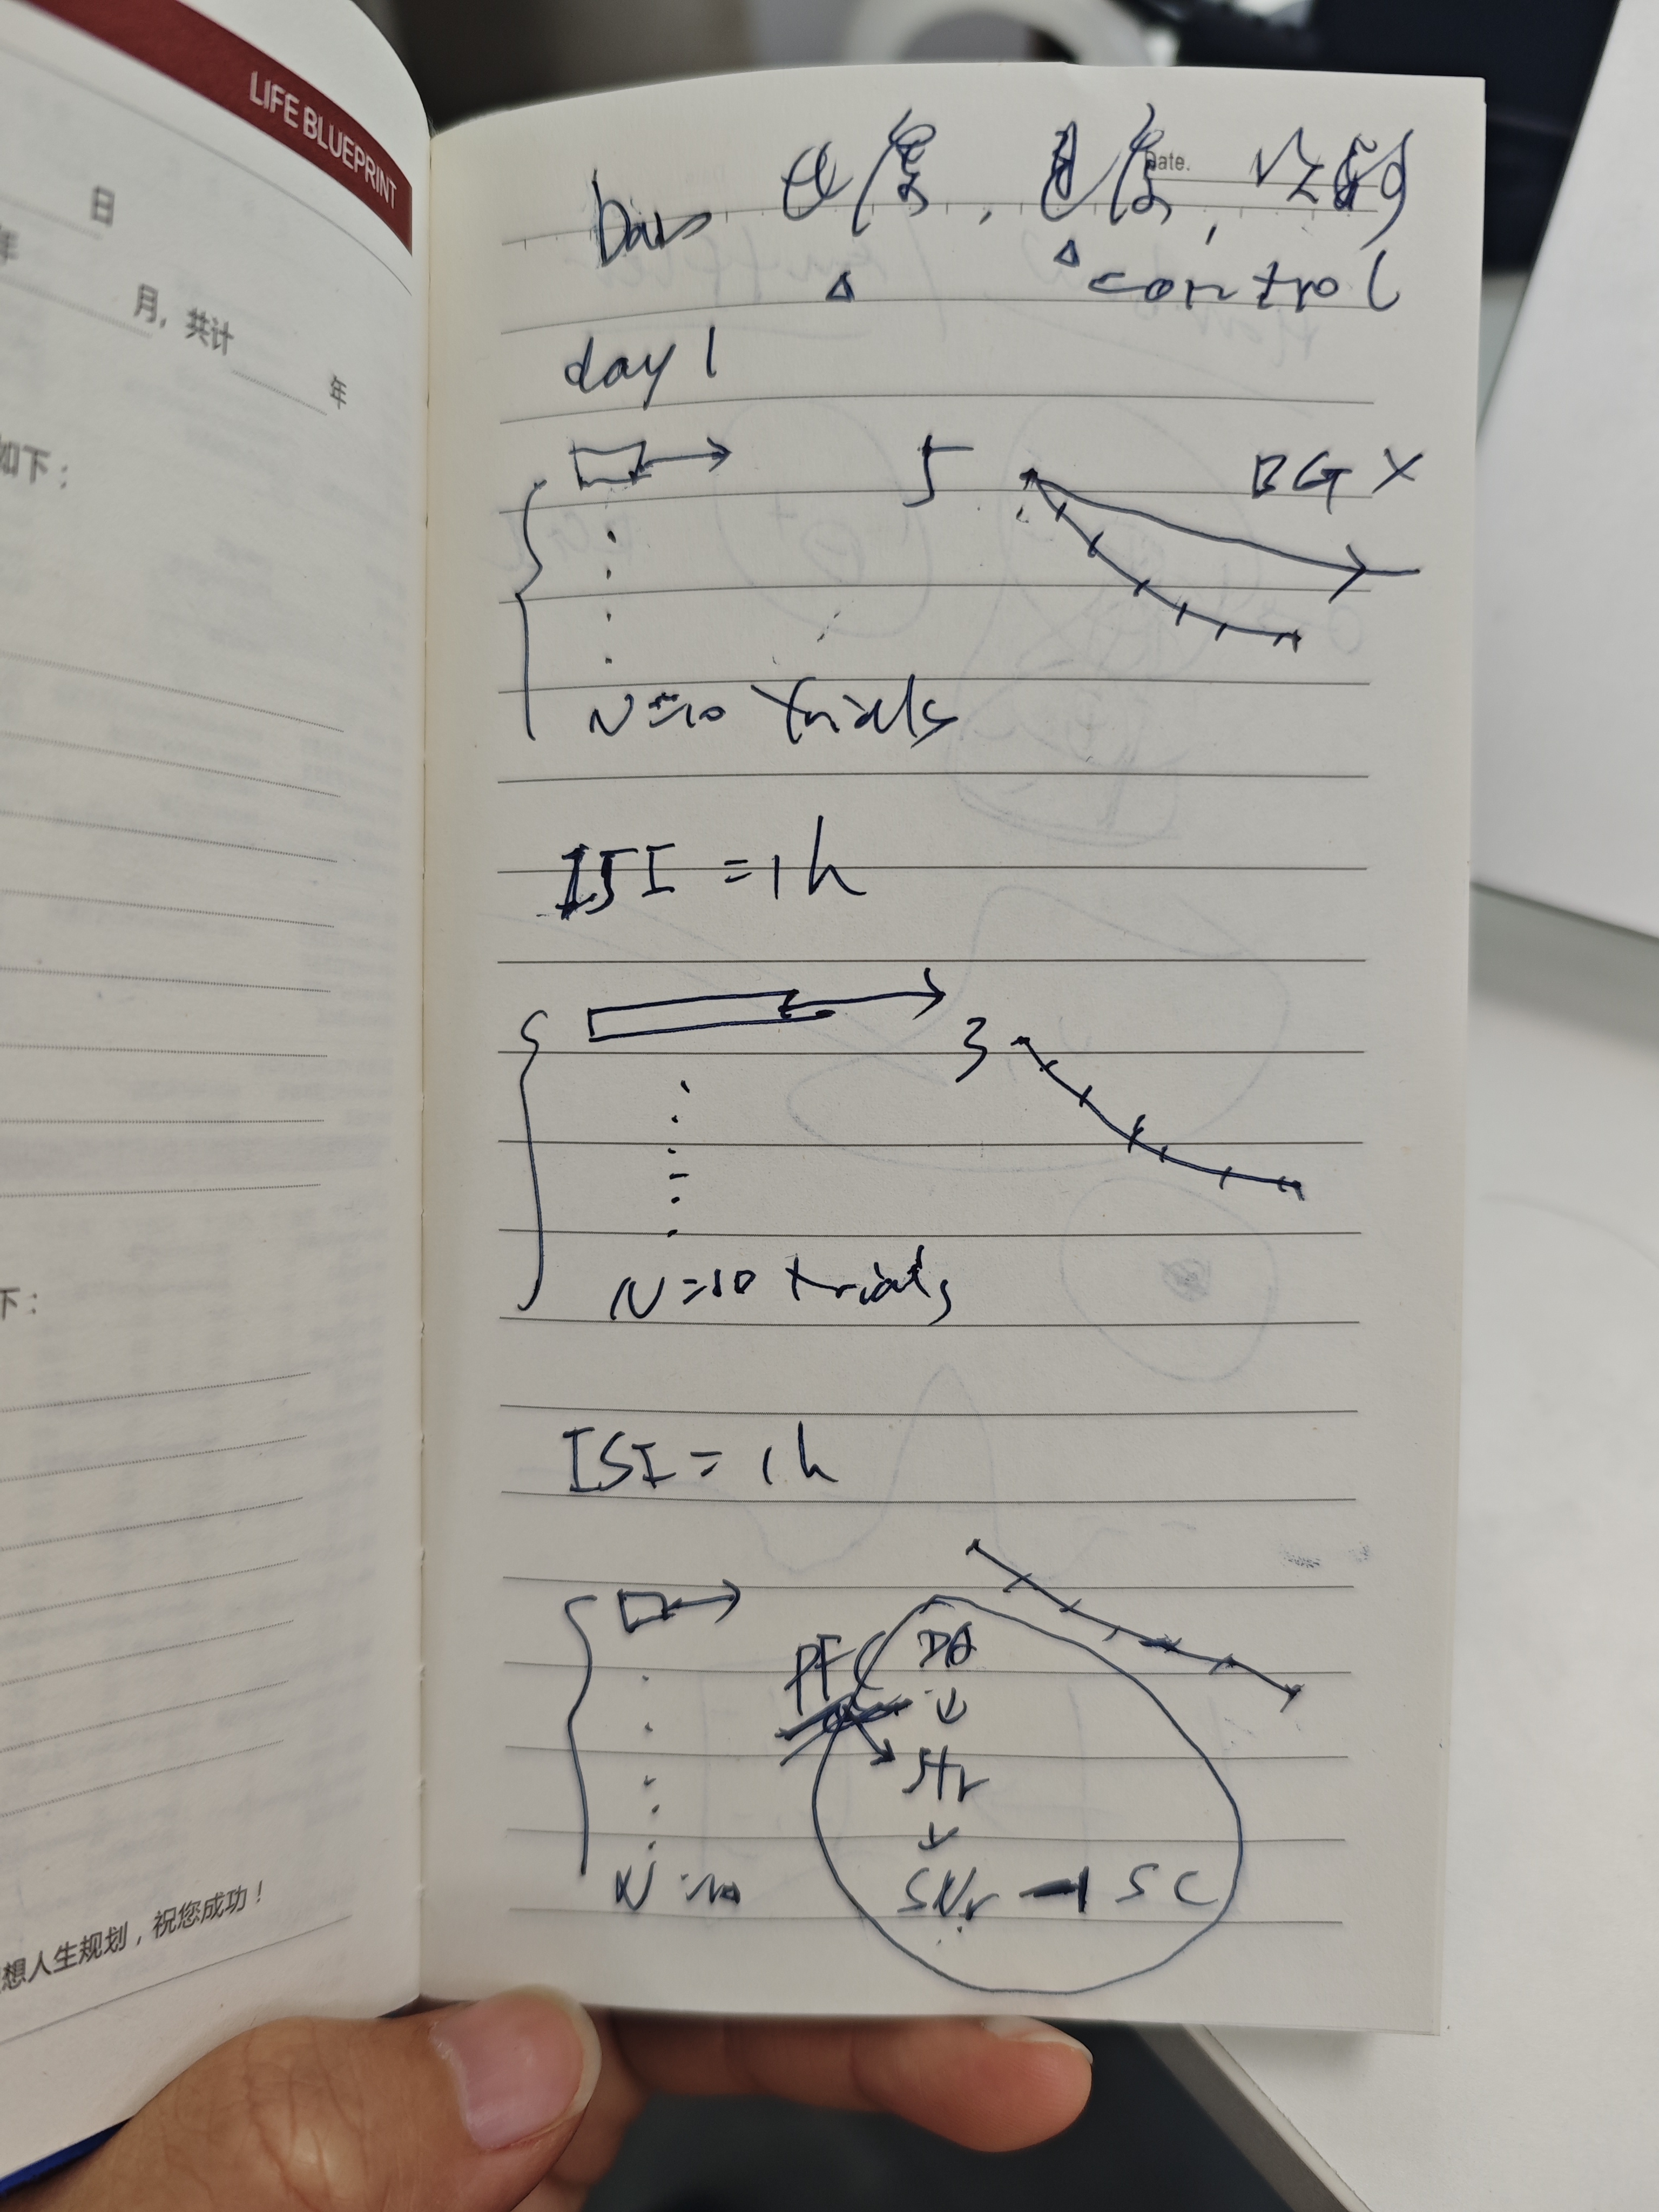 LIFE BLUEPRINT
日
年
月，共计
年
如下：
下：
想人生规划，祝您成功！
Date.
control
day 1
5
BG X
N=10 trials
ISI = 1h
3
N=10 trials
ISI = 1h
PFC DA
Str
SNr SC
N=10